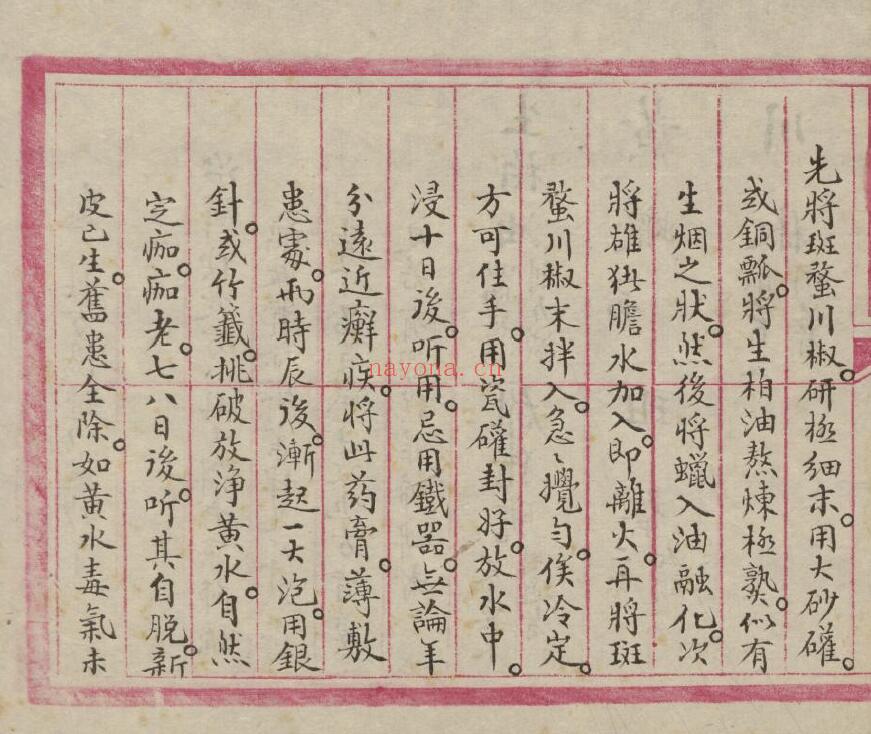 先將斑蝥川椒。研極細末。用大砂罐。
或銅瓢。將生柏油熬煉極熟。似有
生烟之狀。然後將蠟入油融化。次
將雄猪膽水加入。即離火。再將斑
蝥川椒末拌入。急〻攪勻。俟冷定。
方可住手。用瓷罐封好。放水中。
浸十日後。听用。忌用鐵器。無論年
分遠近癬疾。將此药膏。薄敷
患處。兩時辰後。漸起一大泡。用銀
針。或竹籤。挑破放淨黄水。自然
定痂。痂老。七八日後。听其自脱。新
皮已生。舊患全除。如黄水毒氣未
nayona.cn